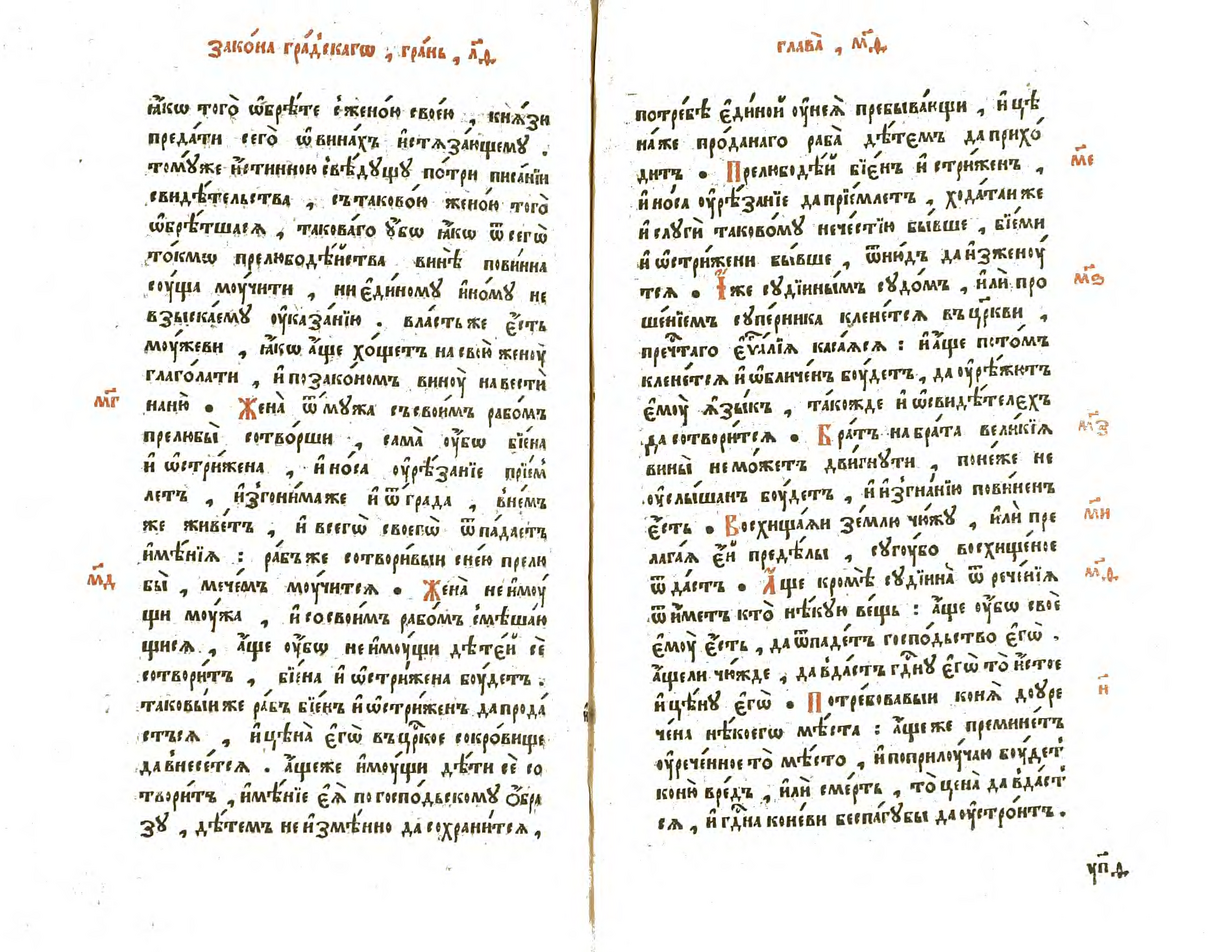 Зако́на гра́дскагѡ , гра́нь , л҃ѳ.
ꙗ҆́кѡ того̀ ѡ҆брѣ́те с̾жено́ю свое́ю , кнѧ́зи
преда́ти сего̀ ѡ҆ вина́хъ и҆стѧза́ющему .
то́мꙋже и҆́стинною свѣ́дꙋщꙋ по́три писа́нїи
свидѣ́тельства , сътаково́ю жено́ю того̀
ѡ҆брѣ́тшасѧ , такова́го ᲂу҆́бѡ ꙗ҆́кѡ ѿ сегѡ̀
то́кмѡ прелюбодѣ́йства винѣ̀ пови́нна
сᲂу́ща мᲂу́чити , ни є҆ди́номꙋ и҆но́мꙋ не
взыска́емꙋ ᲂу҆каза́нїю . вла́стьже є҆́сть
мᲂу́жеви , ꙗ҆́кѡ а҆́ще хо́щетъ на свою̀ женᲂу̀
глаго́лати , и҆ позако́номъ винᲂу̀ навестѝ
на ню̀ • Жена̀ ѿ мꙋ́жа съсвои́мъ рабо́мъ
прелюбы̀ сотво́рши , сама̀ ᲂу҆́бѡ бїе́на
и҆ ѡ҆стри́жена , и҆ но́са ᲂу҆рѣ́занїе прїе́м
летъ , и҆згони́маже и҆ ѿ гра́да , в̾не́мъ
же живе́тъ , и҆ всегѡ̀ своегѡ̀ ѿпа́даетъ
и҆мѣ́нїѧ : ра́бъже сотвори́выи с̾не́ю прелю
бы̀ , мече́мъ мᲂу́читсѧ • Жена̀ не и҆мᲂу́
щи мᲂу́жа , и҆ со свои́мъ рабо́мъ смѣша́ю
щисѧ , а҆́ще ᲂу҆́бѡ не и҆мᲂу́щи дѣте́й се̏
сотвори́тъ , бїе́на и҆ ѡ҆стри́жена бᲂу́детъ .
таковы́иже ра́бъ бїе́нъ и҆ ѡ҆стри́женъ да прода́
стъсѧ , и҆ цѣна̀ є҆гѡ̀ въ цр҃кое сокро́вище
да внесе́тсѧ . а҆́щеже и҆мᲂу́щи дѣ́ти се̏ со
твори́тъ , и҆мѣ́нїе є҆ѧ̀ по госпо́дьскомꙋ ѻ҆́бра
зꙋ , дѣ́темъ не и҆змѣ́нно да сохрани́тсѧ ,
м҃г
м҃д
глава̀ , м҃ѳ.
потре́бѣ є҆ди́ной ᲂу҆ неѧ̀ пребыва́ющи , и҆ цѣ
на́же про́данаго раба̀ дѣ́темъ да прихо́
дитъ • Прелюбодѣ́й бїе́нъ и҆ стри́женъ ,
и҆ но́са ᲂу҆рѣ́занїе да прїе́млетъ , хода́таи же
и҆ слꙋги̏ таково́мꙋ нече́стїю бы́вше , бїе́ми
и҆ ѡ҆стри́жени бы́вше , ѿню́дъ да и҆зженᲂу́
тсѧ • И҆́же сꙋді́инымъ сꙋдо́мъ , и҆лѝ про
ше́нїемъ сꙋпе́рника клене́тсѧ въ цр҃кви ,
преч҃таго є҆ѵ҃а́лїѧ каса́ѧсѧ : и҆ а҆́ще пото́мъ
клене́тсѧ и҆ ѡ҆бличе́нъ бᲂу́детъ , да ᲂу҆рѣ́жꙋтъ
є҆мᲂу̀ ꙗ҆зы́къ , та́кожде и҆ ѡ҆ свидѣ́телехъ
да сотвори́тсѧ • Бра́тъ на бра́та вели́кїѧ
вины̀ не мо́жетъ дви́гнꙋти , поне́же не
ᲂу҆слы́шанъ бᲂу́детъ , и҆ и҆згна́нїю пови́ненъ
є҆́сть • Восхища́ѧи зе́млю чю́жꙋ , и҆лѝ пре
лага́ѧ є҆́й предѣ́лы , сꙋгꙋ́бо восхище́ное
ѿда́стъ • А҆́ще кромѣ̀ сꙋді́инна ѿрече́нїѧ
ѿи́метъ кто̀ нѣ́кꙋю ве́щь : а҆́ще ᲂу҆́бѡ своѐ
є҆мᲂу̀ є҆́сть , да ѿпаде́тъ госпо́дьство є҆гѡ̀ .
а҆́щели чю́жде , да вда́стъ гд҃нꙋ є҆гѡ̀ то̀ и҆́стое
и҆ цѣ́нꙋ є҆гѡ̀ • Потре́бовавыи конѧ̀ до ᲂу҆ре
че́на нѣ́коегѡ мѣ́ста : а҆́ще же преми́нетъ
ᲂу҆рече́нное то̀ мѣ́сто , и҆ по прилᲂу́чаю бᲂу́детъ
коню̀ вре́дъ , и҆лѝ сме́рть , то̀ цена̀ да вда́ст
сѧ , и҆ гд҃на ко́неви беспа́гꙋбы да ᲂу҆стро́итъ .
м҃е
м҃ѕ
м҃з
м҃и
м҃ѳ.
н҃
ꙋп҃ѳ.